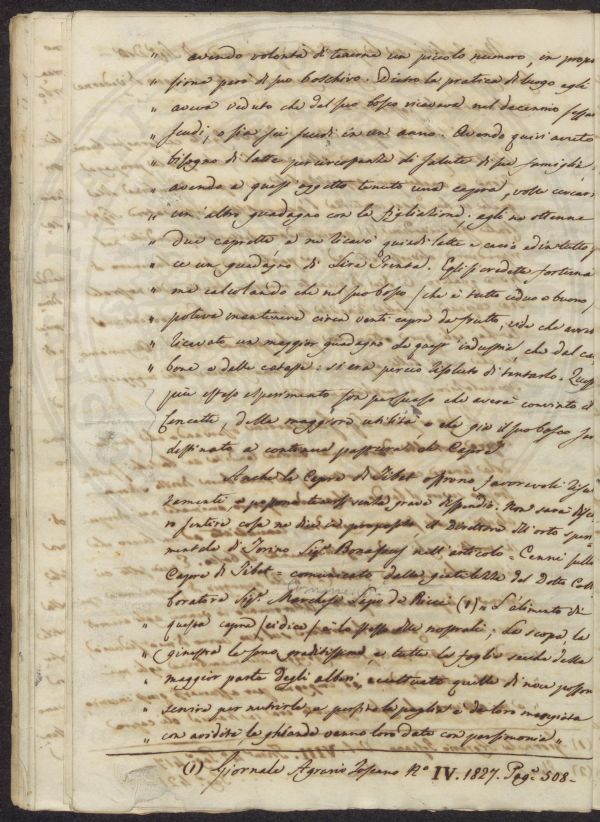 " avendo volontà di tenerne un piccolo numero, in propor
" zione però di suo boschivo. Dietro la pratica di luogo egli
" aveva veduto che dal suo bosco ricavava nel decennio sessa
" scudi, o sia sei scudi in un anno. Avendo quivi avuto
" bisogno di latte per circostanze di salute di sua famiglia
" avendo a quest'oggetto tenuta una capra, volle cercar
" un altro guadagno con la figliazione; egli ne ottenne
" due caprette, e ne ricavò quindi latte e cacio ed in tutto
" ce un guadagno di Lire Trenta. Egli si credette fortuna
" ma calcolando che nel suo bosco (che è tutto ceduo e buono)
" poteva mantenere circa venti capre da frutto, vide che avreb
" ricavato un maggior guadagno da quest'industria, che dal car
" bone e dalle cataste: si era perciò risoluto di tentarlo. Quest
più esteso esperimento son persuaso che averà convinto il
Cencetti, della maggiore utilità, e che già il suo bosco sar
destinato a continua pastura da Capre.
Anche le Capre di Tibet offrono favorevoli risul
tamenti e possono tenersi senza grave dispendio. Non sarà discar
o sentire cosa ne dice in proposito il Direttore dell'orto speri
mentale di Torino Sigr. Bonafous nell'articolo = Cenni sulle
Capre di Tibet = comunicato dalla gentilezza del Dotto Coll
boratore Sigr. Marchese Lapo de Ricci (1) " L'alimento di
" queste capre (ei dice) è lo stesso delle nostrali; la scopa, la
" ginestra le sono graditissime, e tutte le foglie secche della
" maggior parte degli alberi eccettuate quelle di noce posson
" servire per nutrirle, e persino la paglia è da loro mangiata
" con avidità, le ghiande vanno loro date con parsimonia "
(1) Giornale Agrario Toscano No. IV. 1827. Pag. 508 -